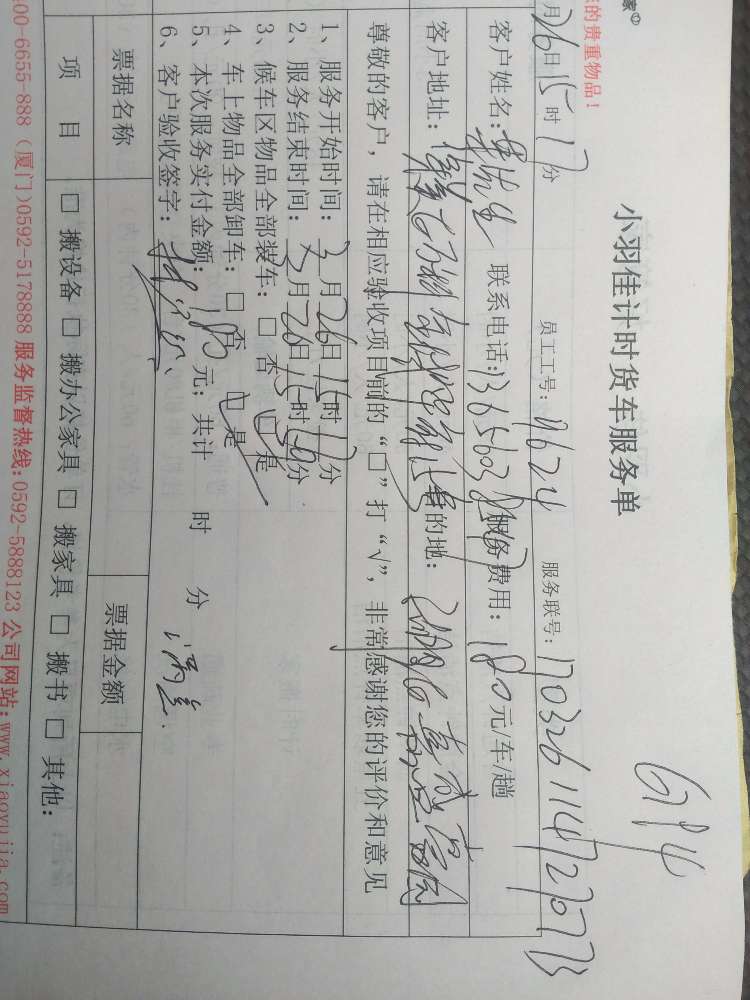 家
您的贵重物品!
小羽佳计时货车服务单
614
月26日15时17分 员工工号:9624 服务联号:17032611472707
客户姓名: 先生 联系电话:1365603 服务费用:180元/车/趟
客户地址: 目的地:
尊敬的客户,请在相应验收项目前的“□”打“√”,非常感谢您的评价和意见
1、服务开始时间:3月26日15时17分
2、服务结束时间:3月26日15时59分
3、候车区物品全部装车:□ 否 □ 是
4、车上物品全部卸车:□ 否 □ 是
5、本次服务实付金额:180元;共计 时 分
6、客户验收签字: 满意
票据名称 票据金额
项 目 □ 搬设备 □ 搬办公家具 □ 搬家具 □ 搬书 □ 其他:
00-6655-888(厦门)0592-5178888 服务监督热线:0592-5888123 公司网站:www.xiaoyujia.com